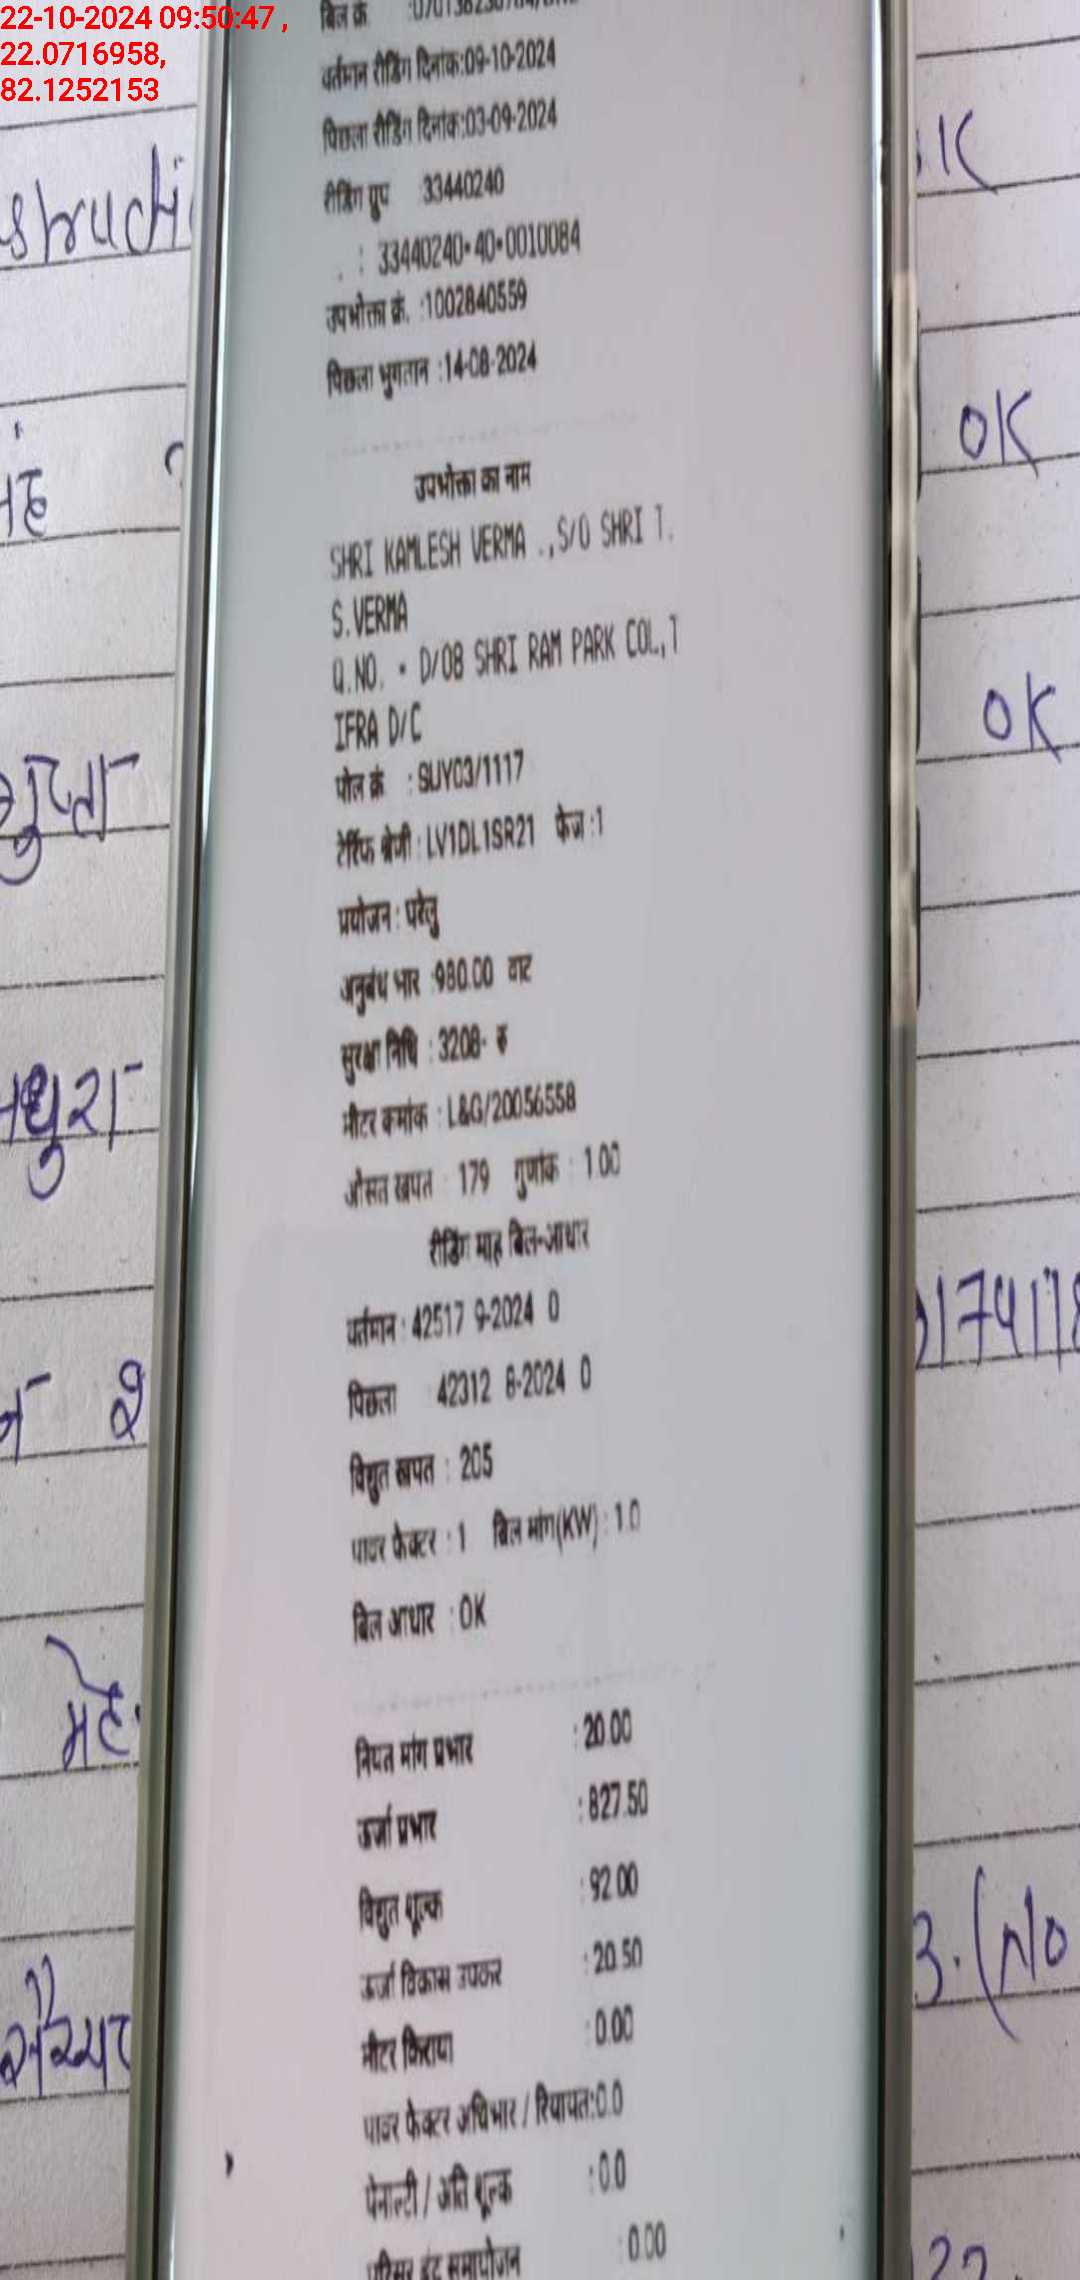 22-10-2024 09:50:47 ,
22.0716958,
82.1252153
बिल क्रं
वर्तमान रीडिंग दिनांक:09-10-2024
पिछला रीडिंग दिनांक:03-09-2024
रीडिंग ग्रुप 33440240
: 33440240-40-0010084
उपभोक्ता क्रं. :1002840559
पिछला भुगतान :14-08-2024
उपभोक्ता का नाम
SHRI KAMLESH VERMA .,S/O SHRI T.
S.VERMA
Q.NO. - D/08 SHRI RAM PARK COL,T
IFRA D/C
पोल क्रं : SUY03/1117
टेरिफ श्रेणी : LV1DL1SR21 फेज :1
प्रयोजन : घरेलु
अनुबंध भार :980.00 वाट
सुरक्षा निधि : 3208- रु
मीटर क्रमांक : L&G/20056558
औसत खपत : 179 गुणांक : 1.00
रीडिंग माह बिल-आधार
वर्तमान : 42517 9-2024 0
पिछला 42312 8-2024 0
विद्युत खपत : 205
पावर फेक्टर : 1 बिल मांग(KW) : 1.0
बिल आधार : OK
नियत मांग प्रभार :20.00
ऊर्जा प्रभार :827.50
विद्युत शुल्क :92.00
ऊर्जा विकास उपकर :20.50
मीटर किराया :0.00
पावर फेक्टर अधिभार / रियायत:0.0
पेनाल्टी / अति शुल्क :0.0
0.00
OK
OK
गुप्ता
3. (No